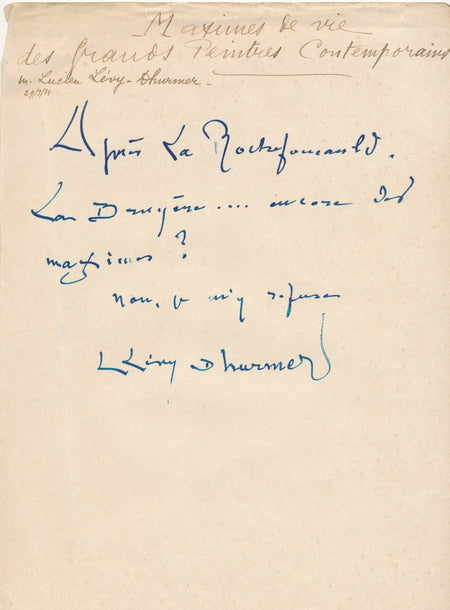 Maximes de vie
des Grands Peintres Contemporains
m. Lucien Lévy-Dhurmer.
29/3/14
Après La Rochefoucauld.
La Bruyère.... encore des
maximes ?
non, je m'y refuse
L Lévy Dhurmer